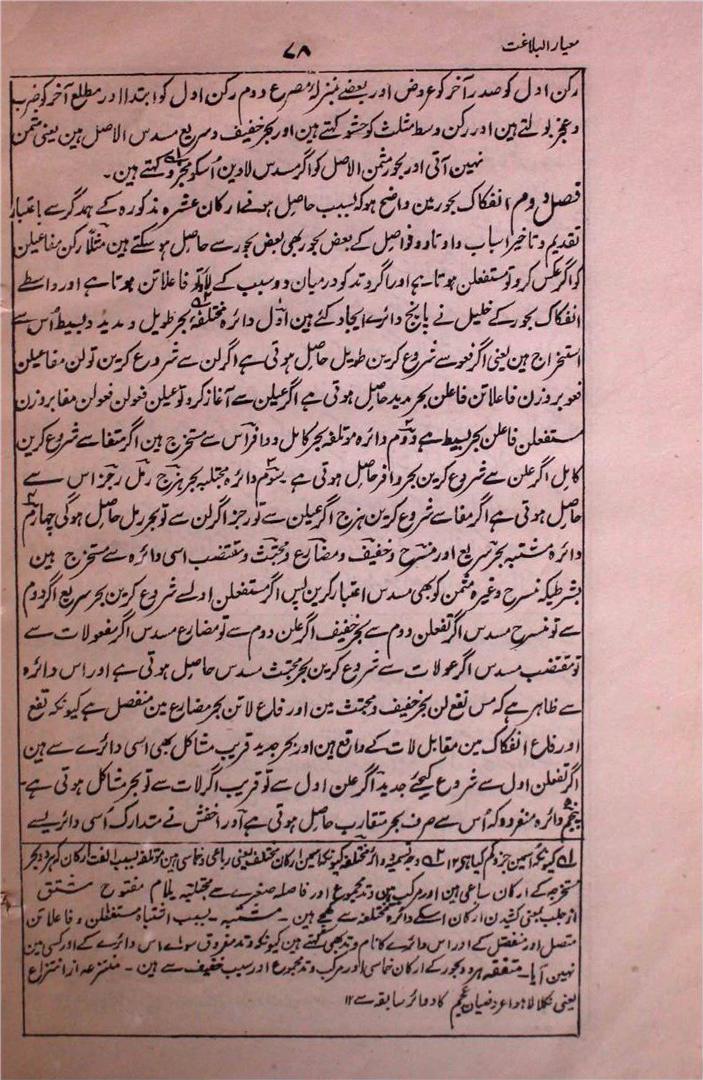 معیار البلاغت
۷۸
رکن اول کو صدر آخر کو عروض اور بعضے بمنزلہ مصرع دوم رکن اول کو ابتدا اور مطلع آخر کو ضرب
و عجز بولتے ہین اور رکن وسط مثلث کو حشو کہتے ہین اور بحر خفیف و سریع مسدس الاصل ہین یعنی مثمن
نہین آتی اور بحور مثمن الاصل کو اگر مسدس لا دین اُسکو مجزو کہتے ہین۔
فصل دوم انفکاک بحور مین واضح ہو کہ بسبب حاصل ہونے ارکان عشرہ مذکورہ کے ہمدگر سے باعتبار
تقدیم و تاخیر اسباب و اوتاد و فواصل کے بعض بحور بھی بعض بحور سے حاصل ہو سکتے ہین مثلًا رکن مفاعیلن
کو اگر عکس کرو تو مستفعلن ہوتا ہے اور اگر وتد کو درمیان دو سبب کے لاؤ تو فاعلاتن ہوتا ہے اور واسطے
انفکاک بحور کے خلیل نے پانچ دائرے ایجاد کئے ہین اول دائرہ مختلفہ بحر طویل و مدید و بسیط اُس سے
استخراج ہین یعنی اگر فعو سے شروع کرین طویل حاصل ہوتی ہے اگر لن سے شروع کرین تو لن مفاعیلن
فعو بروزن فاعلاتن فاعلن بحر مدید حاصل ہوتی ہے اگر عیلن سے آغاز کرو تو عیلن فعولن فعولن مفا بروزن
مستفعلن فاعلن بحر بسیط ہے دوم دائرہ موتلفہ بحر کامل و وافر اس سے مستخرج ہین اگر متفا سے شروع کرین
کامل اگر علن سے شروع کرین بحر وافر حاصل ہوتی ہے سوم دائرہ مجتلبہ بحر ہزج رمل رجز اس سے
حاصل ہوتی ہے اگر مفا سے شروع کرین ہزج اگر عیلن سے تو رجز اگر لن سے تو بحر رمل حاصل ہوگی چہارم
دائرہ مشتبہ بحر سریع اور منسرح و خفیف و مضارع و مجتث و مقتضب اسی دائرہ سے مستخرج ہین
بشرطیکہ منسرح وغیرہ مثمن کو بھی مسدس اعتبار کرین پس اگر مستفعلن اول سے شروع کرین بحر سریع اگر دوم
سے تو منسرح مسدس اگر تفعلن دوم سے بحر خفیف اگر علن دوم سے تو مضارع مسدس اگر مفعولات سے
تو مقتضب مسدس اگر عولات سے شروع کرین بحر مجتث مسدس حاصل ہوتی ہے اور اس دائرہ
سے ظاہر ہے کہ مس تفع لن بحر خفیف و مجتث مین اور فاع لاتن بحر مضارع مین منفصل ہے کیونکہ تفع
اور فاع انفکاک مین مقابل لات کے واقع ہین اور بحر جدید قریب مشاکل بھی اسی دائرے سے ہین
اگر تفعلن اول سے شروع کیجئے جدید اگر علن اول سے تو قریب اگر لات سے تو بحر مشاکل ہوتی ہے۔
پنجم دائرہ منفردہ کہ اُس سے صرف بحر متقارب حاصل ہوتی ہے اور اخفش نے متدارک اُسی دائرے سے
۱؎ کیونکہ اسمین جزو کم کیا ہی ۱۲ ۲؎ وجہ تسمیہ دوائر مختلفہ کیونکہ اسمین ارکان مختلف یعنی رباعی و خماسی ہین موتلفہ بسبب الفت ارکان کہ ہر دو بحر
مستخرجہ کے ارکان سباعی ہین اور مرکب ہین وتد مجموع اور فاصلہ صغرے سے مجتلبہ بلام مفتوح مشتق
از جلب بمعنی کشیدن ارکان اسکے دائرہ مختلفہ سے کھچے ہین۔ مشتبہ۔ بسبب اشتباہ مستفعلن و فاعلاتن
متصل اور منفصل کے اور اس دائرے کا نام وتد بھی کہتے ہین کیونکہ وتد مفروق سوائے اس دائرے کے اور کسی مین
نہین آیا۔ متفقہ ہر دو بحور کے ارکان خماسی اور مرکب وتد مجموع اور سبب خفیف سے ہین۔ منتزعہ از انتزاع
یعنی نکالا ہوا عروضیان عجم کا دوائر سابقہ سے ۱۲